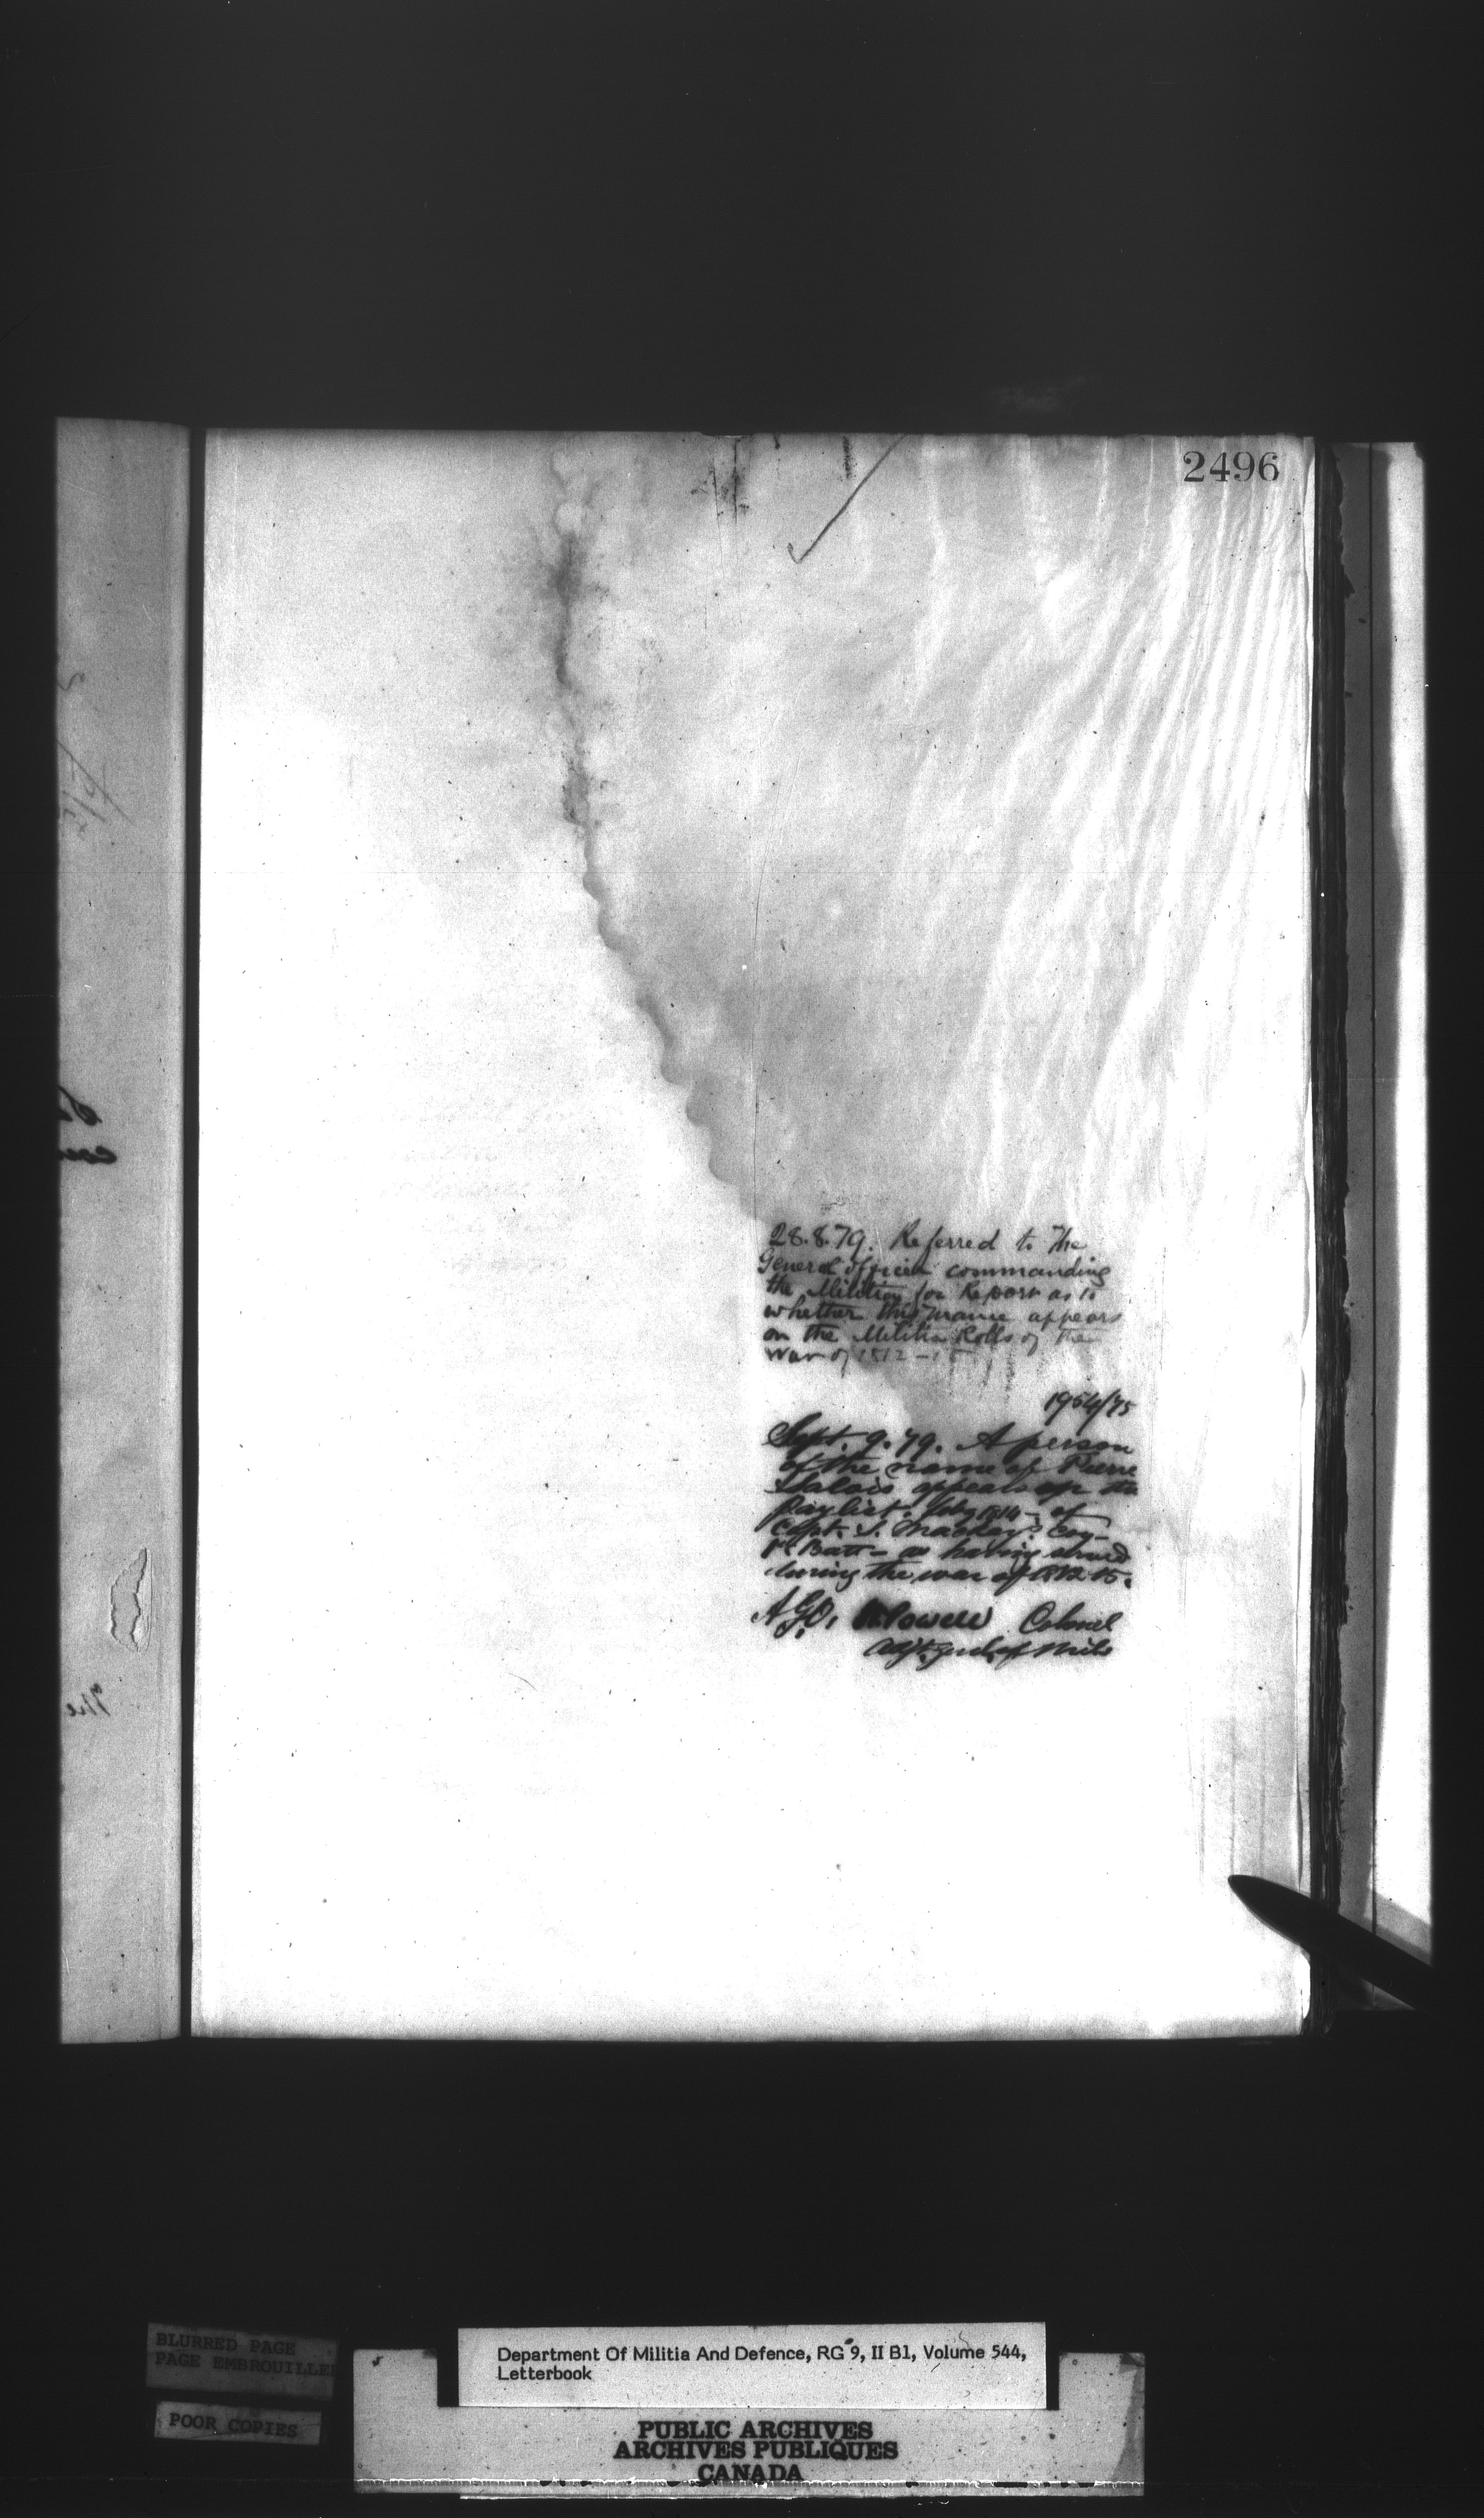 2496
28.8.79. Referred to the
General Officer commanding
the Militia for Report as to
whether this name appears
on the Militia Rolls of the
War of 1812-15
1954/75
Sept. 9. 79. A person
of the name of Pierre
appears on the
Paylist. 1814 - of
Capt. S. Mackay's Coy-
1st Batt - as having served
during the war of 1812-15.
A.G.O. Powell Colonel
Adjt. Genl. of Mila
the
BLURRED PAGE
PAGE EMBROUILLEE
POOR COPIES
Department Of Militia And Defence, RG 9, II B1, Volume 544,
Letterbook
PUBLIC ARCHIVES
ARCHIVES PUBLIQUES
CANADA